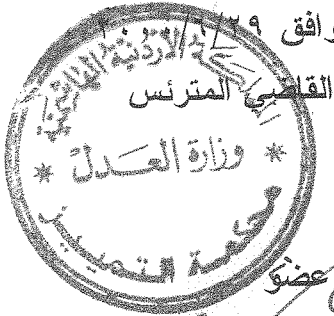 وافق ٢٩/٦/
القاضي المترئس
المملكة الأردنية الهاشمية
* وزارة العدل *
محكمة التمييز
عضو